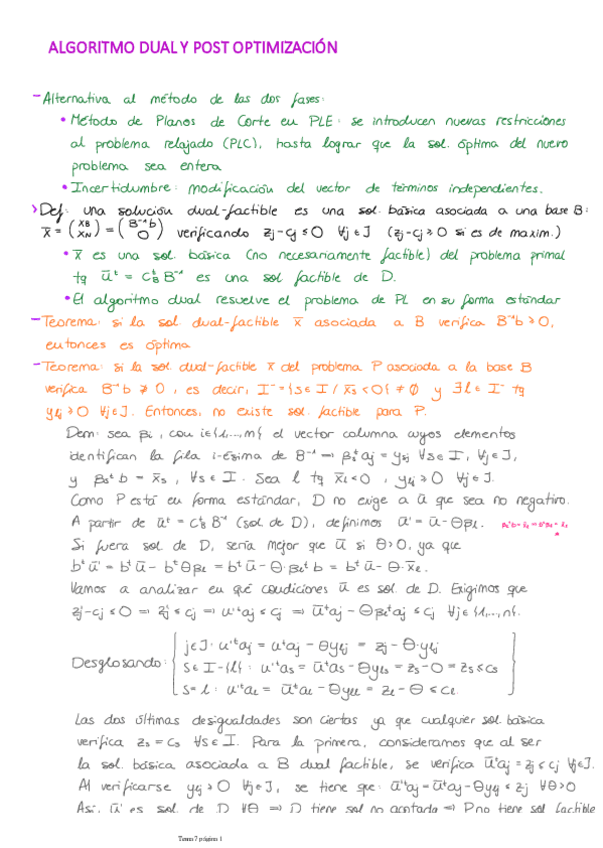 ALGORITMO DUAL Y POST OPTIMIZACIÓN
- Alternativa al método de las dos fases:
• Método de Planos de Corte en PLE: se introducen nuevas restricciones
al problema relajado (PLC), hasta lograr que la sol. óptima del nuevo
problema sea entera
• Incertidumbre: modificación del vector de términos independientes.
> Def: una solución dual-factible es una sol. básica asociada a una base B:
x̄ = (x_B / x_N) = (B⁻¹b / 0) verificando zj - cj ≤ 0 ∀j ∈ J (zj - cj ≥ 0 si es de maxim.)
• x̄ es una sol. básica (no necesariamente factible) del problema primal
tq ūᵗ = c_Bᵗ B⁻¹ es una sol factible de D.
• El algoritmo dual resuelve el problema de PL en su forma estándar
- Teorema: si la sol dual-factible x̄ asociada a B verifica B⁻¹b ≥ 0,
entonces es óptima
- Teorema: si la sol. dual-factible x̄ del problema P asociada a la base B
verifica B⁻¹b ≱ 0, es decir, I⁻ = {s ∈ I / x̄s < 0} ≠ ∅ y ∃ l ∈ I⁻ tq
ylj ≥ 0 ∀j ∈ J. Entonces, no existe sol. factible para P.
Dem: sea βi, con i ∈ {1,...,m} el vector columna cuyos elementos
identifican la fila i-ésima de B⁻¹ ⇒ βsᵗaj = ysj ∀s ∈ I, ∀j ∈ J,
y βsᵗb = x̄s, ∀s ∈ I. Sea l tq x̄l < 0, ylj ≥ 0 ∀j ∈ J.
Como P está en forma estándar, D no exige a ū que sea no negativo.
A partir de ūᵗ = c_Bᵗ B⁻¹ (sol de D), definimos ū' = ū - Θβl.
Si fuera sol de D, sería mejor que ū si Θ > 0, ya que
bᵗū' = bᵗū - bᵗΘβl = bᵗū - Θ·βlᵗb = bᵗū - Θ·x̄l.
Vamos a analizar en qué condiciones ū es sol. de D. Exigimos que
zj - cj ≤ 0 ⇒ zj ≤ cj ⇒ u'ᵗaj ≤ cj ⇒ ūᵗaj - Θβlᵗaj ≤ cj ∀j ∈ {1,...,n}.
Desglosando: { j ∈ J: u'ᵗaj = uᵗaj - Θylj = zj - Θ·ylj
s ∈ I - {l}: u'ᵗas = ūᵗas - Θyls = zs - 0 = zs ≤ cs
s = l: u'ᵗal = ūᵗal - Θyll = zl - Θ ≤ cl }
Las dos últimas desigualdades son ciertas ya que cualquier sol. básica
verifica zs = cs ∀s ∈ I. Para la primera, consideramos que al ser
la sol. básica asociada a B dual factible, se verifica ūᵗaj = zj ≤ cj ∀j ∈ J.
Al verificarse ylj ≥ 0 ∀j ∈ J, se tiene que: ū'ᵗaj = ūᵗaj - Θylj ≤ zj ∀Θ > 0
Así, ū' es sol. de D ∀Θ ⇒ D tiene sol no acotada ⇒ P no tiene sol factible
Tema 7 página 1